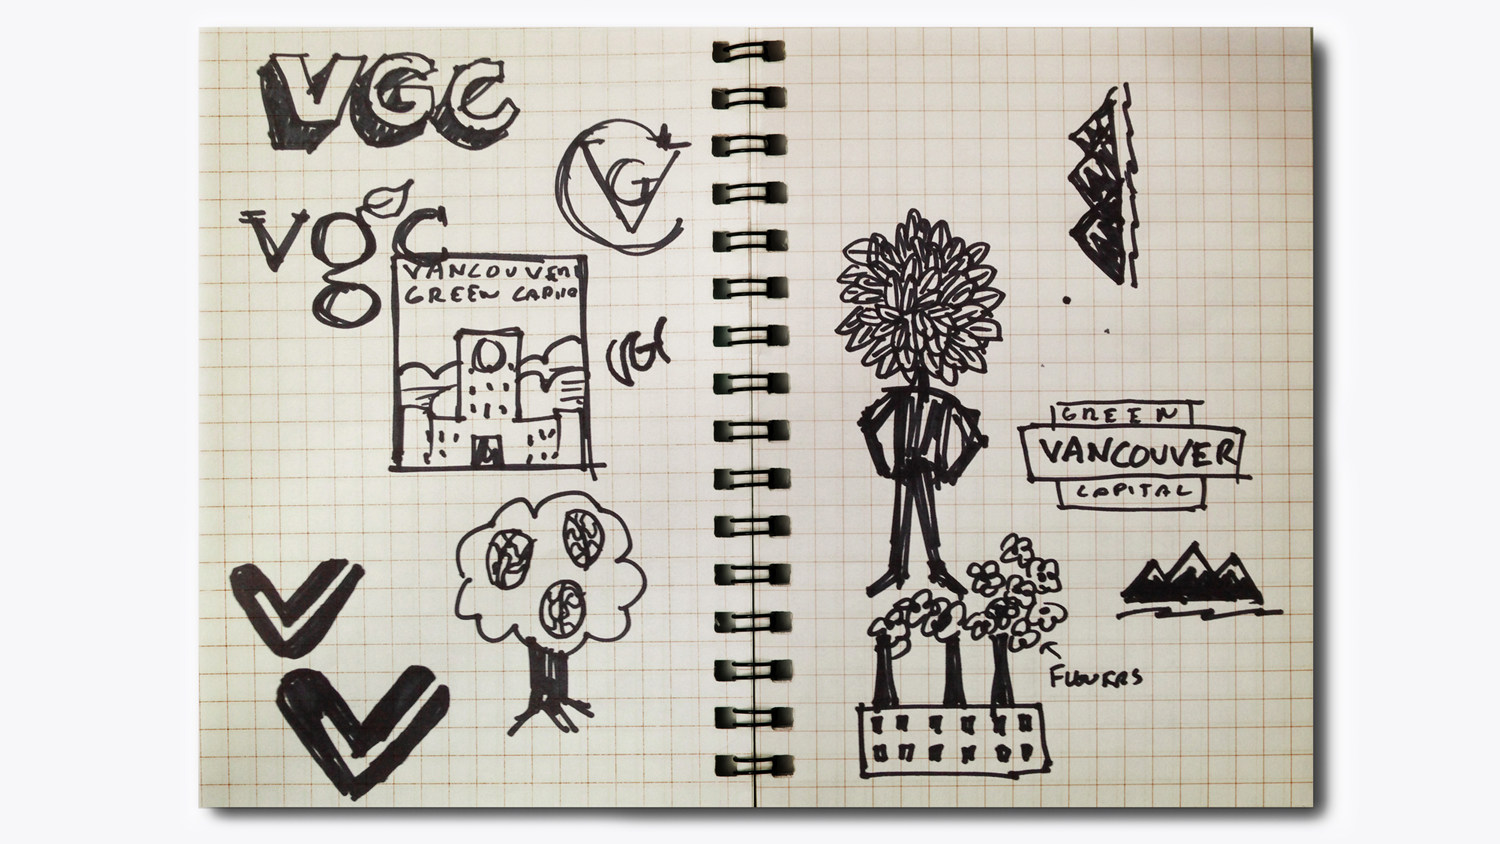 VGC
VGC
vgc
VANCOUVER
GREEN CAPITAL
VGC
GREEN
VANCOUVER
CAPITAL
FLOWERS